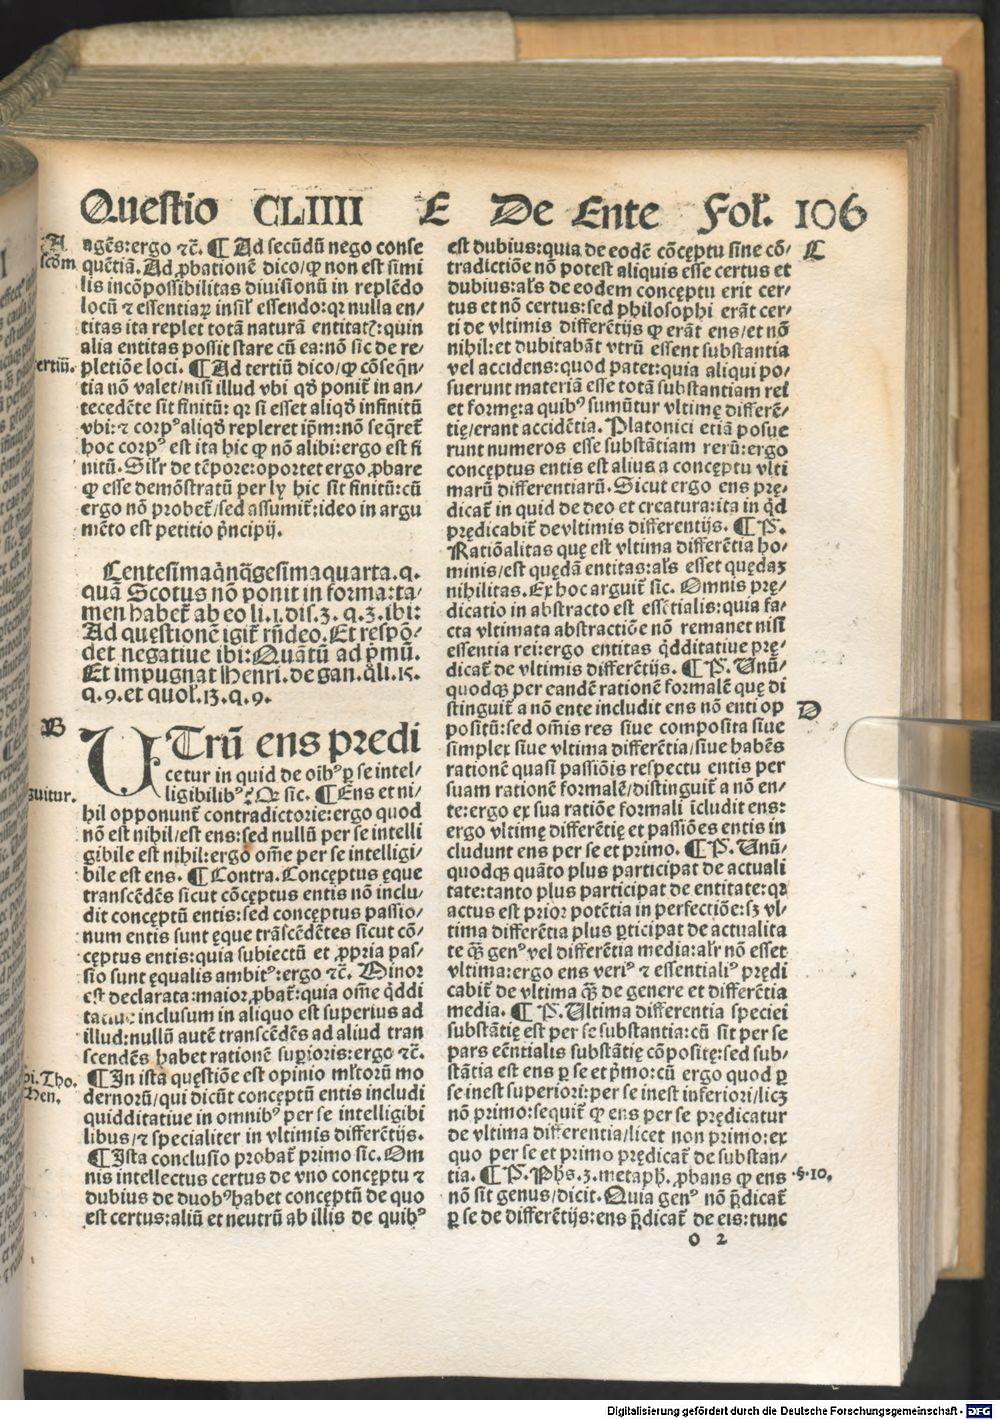 Questio CLIIII E De Ente Fol. 106
A
ad
scḋm
agēs: ergo ⁊c̄. ¶ Ad secūdū nego conse
quētiā. Ad ꝓbationē dico/ꝙ non est simi
lis incōpossibilitas diuisionū in replēdo
locū ⁊ essentiaꝝ insiƚ essendo: qꝛ nulla en-
titas ita replet totā naturā entitat͛: quin
alia entitas possit stare cū ea: nō sic de re-
ertiū.
pletiōe loci. ¶ Ad tertiū dico/ꝙ cōseqn̄-
tia nō valet/nisi illud vbi qḋ ponit̄ in an/
tecedēte sit finitū: qꝛ si esset aliqḋ infinitū
vbi: ⁊ corpꝰ aliqḋ repleret ip̄m: nō seq̄ret̄
hoc corpꝰ est ita hic ꝙ nō alibi: ergo est fi
nitū. Siƚr de tēpore: oportet ergo ꝓbare
ꝙ esse demōstratū per ly hic sit finitū: cū
ergo nō probet̄/sed assumit̄: ideo in argu
mēto est petitio pͥncipij.
Centesimaq̄nq̄gesimaquarta. q.
quā Scotus nō ponit in forma: ta/
men habet̄ ab eo li. 1. dis. 3. q. 3. ibi:
Ad quęstionē igit̄ rn̄deo. Et respō/
det negatiue ibi: Quātū ad pͥmū.
Et impugnat Henri. de gan. q̄li. 15.
q. 9. et quoƚ. 13. q. 9.
B
UTrū ens predi
cetur in quid de oībꝰ ꝑ se intel-
guitur.
ligibilibꝰ? Qꝛ sic. ¶ Ens et ni/
hil opponunt̄ contradictorie: ergo quod
nō est nihil/est ens: sed nullū per se intelli
gibile est nihil: ergo om̄e per se intelligi/
bile est ens. ¶ Contra. Conceptus ęque
transcēdēs sicut cōceptus entis nō inclu/
dit conceptū entis: sed conceptus passio/
num entis sunt ęque trāscēdētes sicut cō-
cęptus entis: quia subiectū et ꝓpria pas/
sio sunt ęqualis ambitꝰ: ergo ⁊c̄. Minor
est declarata: maior ꝓbat̄: quia om̄e q̇ddi
tatiue inclusum in aliquo est superius ad
illud: nullū autē transcēdēs ad aliud tran
scendēs habet rationē suꝑioris: ergo ⁊c̄.
pi. Tho.
Hen.
¶ In ista quęstiōe est opinio mƚtorū mo
dernorū/qui dicūt conceptū entis includi
quidditatiue in omnibꝰ per se intelligibi
libus/⁊ specialiter in vltimis differētijs.
¶ Ista conclusio probat̄ primo sic. Om
nis intellectus certus de vno conceptu ⁊
dubius de duobꝰ habet conceptū de quo
est certus: aliū et neutrū ab illis de quibꝰ
C
est dubius: quia de eodē cōcęptu sine cō/
tradictiōe nō potest aliquis esse certus et
dubius: aƚs de eodem concęptu erit cer-
tus et nō certus: sed philosophi erāt cer-
ti de vltimis differētijs ꝙ erāt ens/et nō
nihil: et dubitabāt vtrū essent substantia
vel accidens: quod patet: quia aliqui po/
suerunt materiā esse totā substantiam rei
et formę: a quibꝰ sumūtur vltimę differē/
tię/erant accidētia. Platonici etiā posue
runt numeros esse substātiam rerū: ergo
conceptus entis est alius a conceptu vlti
marū differentiarū. Sicut ergo ens prę/
dicat̄ in quid de deo et creatura: ita in q̇d
prędicabit̄ de vltimis differentijs. ¶ P̄.
Ratiōalitas quę est vltima differētia ho/
minis/est quędā entitas: aƚs esset quędaꝫ
nihilitas. Ex hoc arguit̄ sic. Omnis prę/
dicatio in abstracto est essētialis: quia fa/
cta vltimata abstractiōe nō remanet nisi
essentia rei: ergo entitas q̇dditatiue prę/
dicat̄ de vltimis differētijs. ¶ P̄. Unū/
quodqꝫ per eandē rationē formalē quę di
D
stinguit̄ a nō ente includit ens nō enti op
positū: sed om̄is res siue composita siue
simplex siue vltima differētia/siue habēs
rationē quasi passiōis respectu entis per
suam rationē formalē/distinguit̄ a nō en-
te: ergo ex sua ratiōe formali īcludit ens:
ergo vltimę differētię et passiōes entis in
cludunt ens per se et primo. ¶ P̄. Unū/
quodqꝫ quāto plus participat de actuali
tate: tanto plus participat de entitate: qꝛ
actus est prior potētia in perfectiōe: sꝫ vl-
tima differētia plus ꝑticipat de actualita
te qꝫ̄ genꝰ vel differētia media: aƚr nō esset
vltima: ergo ens veriꝰ ⁊ essentialiꝰ prędi
cabit̄ de vltima qꝫ̄ de genere et differētia
media. ¶ P̄. Ultima differentia speciei
substātię est per se substantia: cū sit per se
pars eēntialis substātię cōpositę: sed sub-
stātia est ens ꝑ se et pͥmo: cū ergo quod ꝑ
se inest superiori: per se inest inferiori/licꝫ
nō primo: sequit̄ ꝙ ens per se prędicatur
de vltima differentia/licet non primo: ex
quo per se et primo prędicat̄ de substan-
tia. ¶ P̄. Phs. 3. metaph. ꝓbans ꝙ ens
·§·10.
nō sit genus/dicit. Quia genꝰ nō p̄dicat̄
ꝑ se de differētijs: ens p̄dicat̄ de eis: tunc
o 2
Digitalisierung gefördert durch die Deutsche Forschungsgemeinschaft - DFG